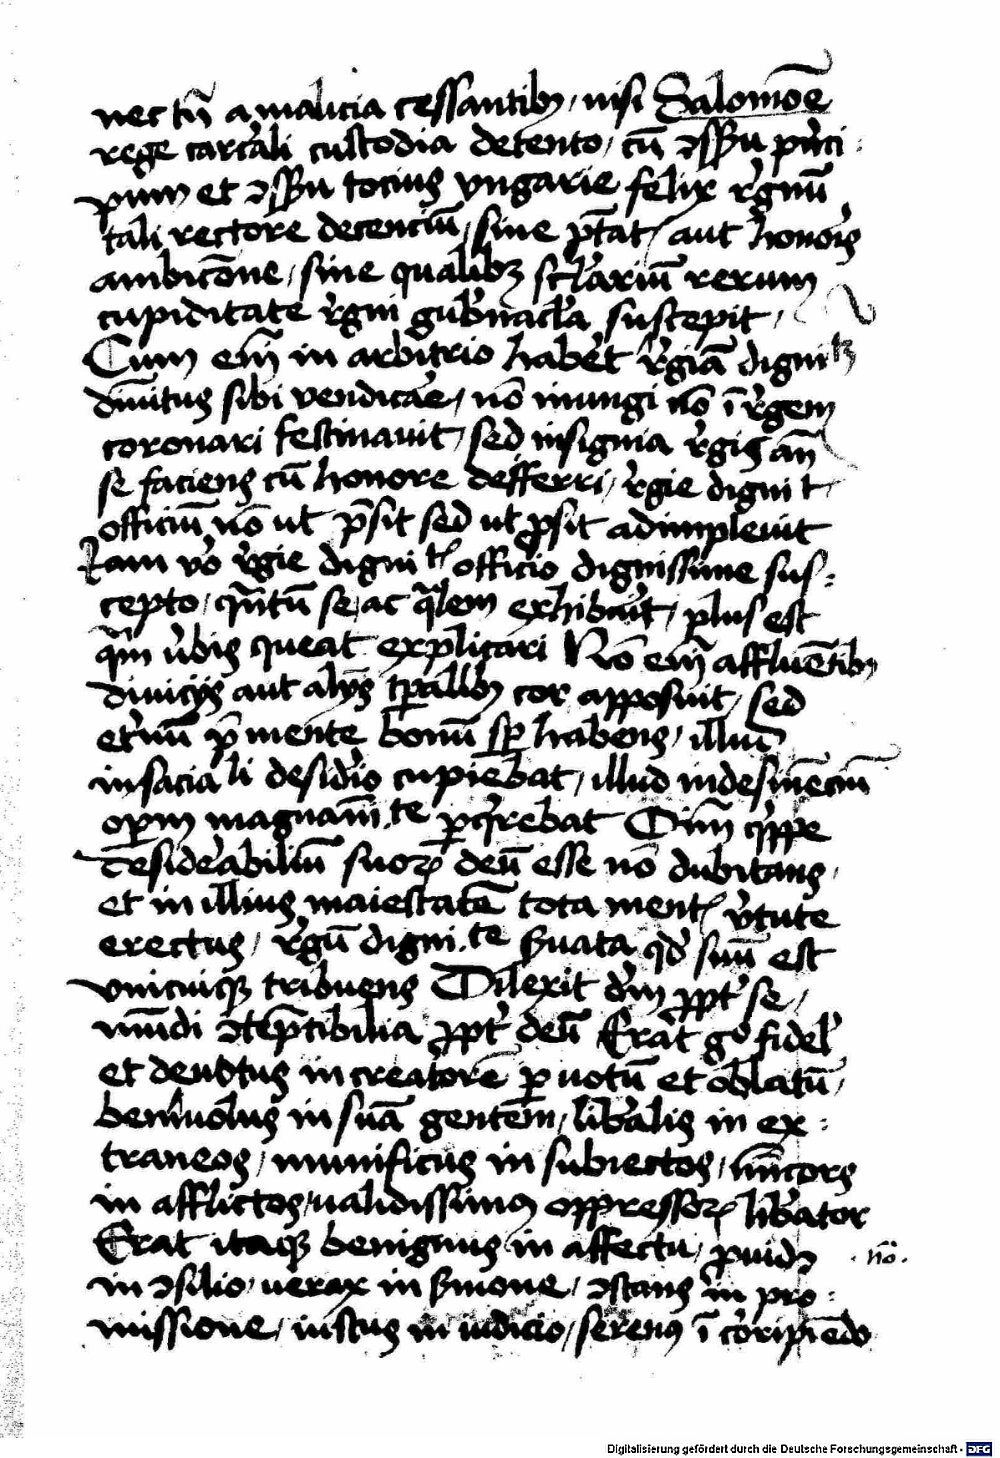 nec tn̄ a malicia cessantibꝫ / nisi Salomōe
rege carc̓ali custodia detento / cū ↄssu pn̓ci :
pum et ↄssu tocius vngarie felix r̓gnū
tali rectore decenciū / sine ptāt / aut honor̓
ambicōne / sine qualibꝫ sc̓lariū rerum
cupiditate r̓gni gub̓nacl̓a suscepit /
Cum em̄ in arbitrio hab̓et r̓giā dignitꝫ
diuītus sibi vendicar̓e / nō inungi nō ī r̓gem
coronari festinauit / sed insignia r̓gis an̄
se faciens cū honore defferri / r̓gie dignit
officiū nō ut p̄sit sed ut ꝓsit adimpleuit
Nam v̓o r̓gie dignitꝭ officio dignissime sus :
cepto / qn̄tū se / ac qᷓlem exhibuit / plus est
qᷓm v̓bis queat explicari Nō em̄ affluētibꝫ
diuicijs aut alijs tp̄allibꝫ cor apposuit / sed
et̓nū p̄ mente bonū sp̄ habens / illud
insaciali desid̓io cupiebat / illud indesinēciū
op̄rm magnanīte ꝑq̓rebat Oīm q̓ppe
desiderabiliū suoꝝ deū esse nō dubitans /
et in illius maiestatē tota mentꝭ v̓tute
erectus / r̓gū dignite s̓uata qd̓ suū est
vnicuiqꝫ tribuens Dilexit dm̄ ꝓpt̓ se /
mūdi ↄtēptibilia ꝓpt̓ deū Erat gͦ fidel̓
et deuotus in creatorē ꝑ votū et oblatū /
beniuolus in suā gentem / lib̓alis in ex :
traneos / munificus in subiectos / mīcors
in afflictos / ualidissimꝰ oppressoꝝ lib̓ator
Erat itaqꝫ benignus in affectu / ꝓuidꝰ
nō.
in ↄsilio / uerax in s̓mone / ↄstans in pro :
missione / iustus in iudicio / serenꝰ ī cor̓ipiēdo
Digitalisierung gefördert durch die Deutsche Forschungsgemeinschaft - DFG